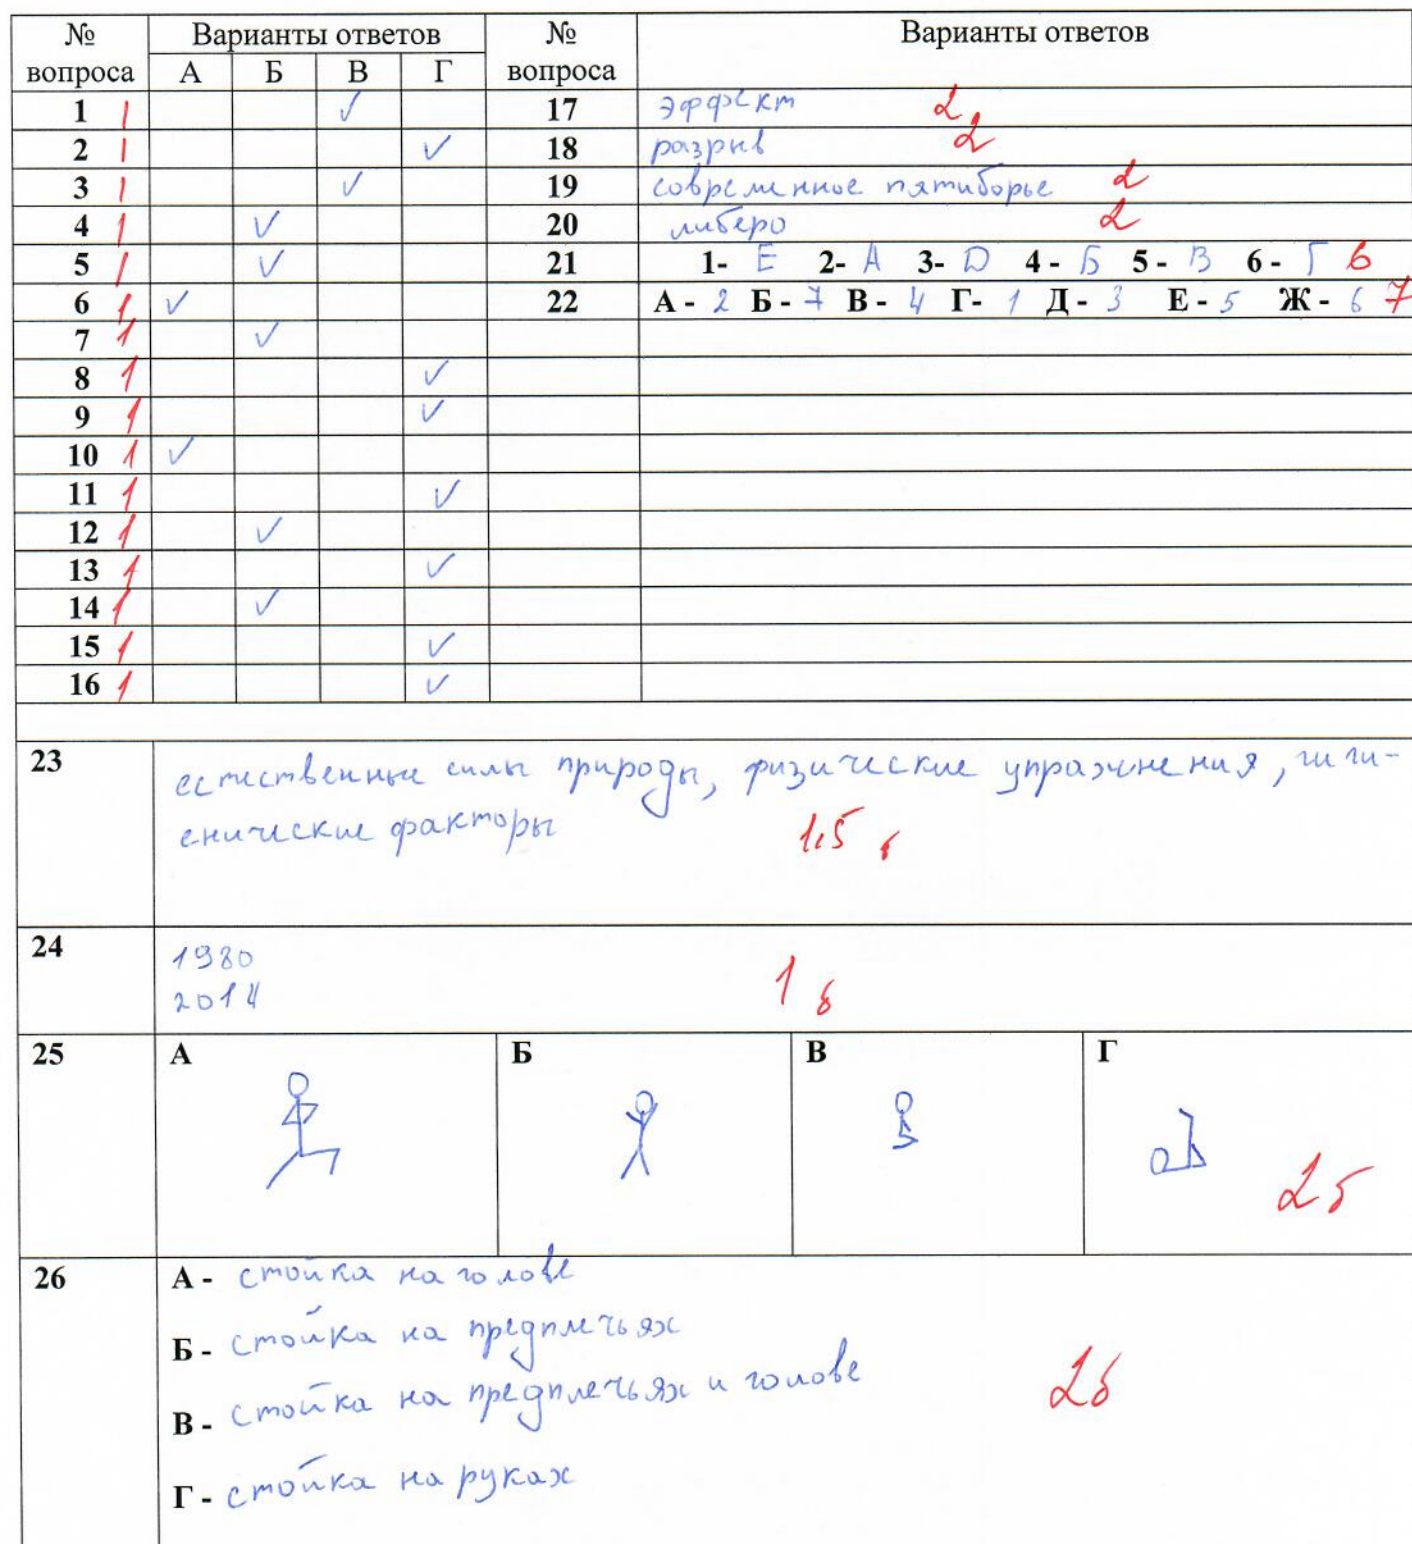 № Варианты ответов № Варианты ответов
вопроса А Б В Г вопроса
1 1 ✓ 17 эффект 2
2 1 ✓ 18 разрыв 2
3 1 ✓ 19 современное пятиборье 2
4 1 ✓ 20 либеро 2
5 1 ✓ 21 1- Е 2- А 3- D 4 - Б 5 - В 6 - Г 6
6 1 ✓ 22 А - 2 Б - 7 В - 4 Г- 1 Д - 3 Е - 5 Ж - 6 7
7 1 ✓
8 1 ✓
9 1 ✓
10 1 ✓
11 1 ✓
12 1 ✓
13 1 ✓
14 1 ✓
15 1 ✓
16 1 ✓
23 естественные силы природы, физические упражнения, гиги-
енические факторы 1,5 б
24 1980
2014 1 б
25 А Б В Г
2б
26 А - стойка на голове
Б - стойка на предплечьях
В - стойка на предплечьях и голове 2б
Г - стойка на руках